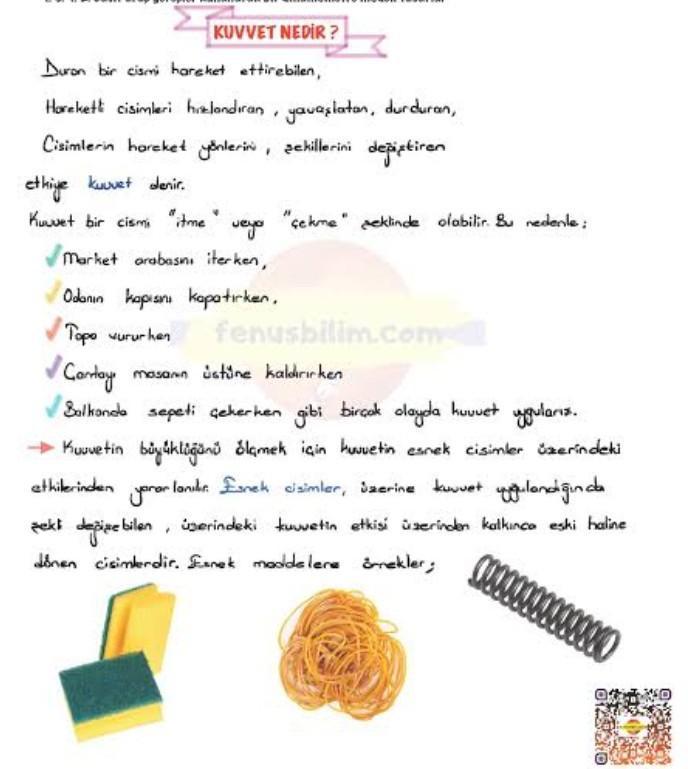 KUVVET NEDİR ?
Duran bir cismi hareket ettirebilen,
Hareketli cisimleri hızlandıran , yavaşlatan, durduran,
Cisimlerin hareket yönlerini , şekillerini değiştiren
etkiye kuvvet denir.
Kuvvet bir cismi "itme" veya "çekme" şeklinde olabilir. Bu nedenle ;
Market arabasını iterken,
Odanın kapısını kapatırken,
Topa vururken
fenusbilim.com
Çantayı masanın üstüne kaldırırken
Balkonda sepeti çekerken gibi birçok olayda kuvvet uygularız.
→ Kuvvetin büyüklüğünü ölçmek için kuvvetin esnek cisimler üzerindeki
etkilerinden yararlanılır. Esnek cisimler, üzerine kuvvet uygulandığında
şekli değişebilen , üzerindeki kuvvetin etkisi üzerinden kalkınca eski haline
dönen cisimlerdir. Esnek maddelere örnekler ;